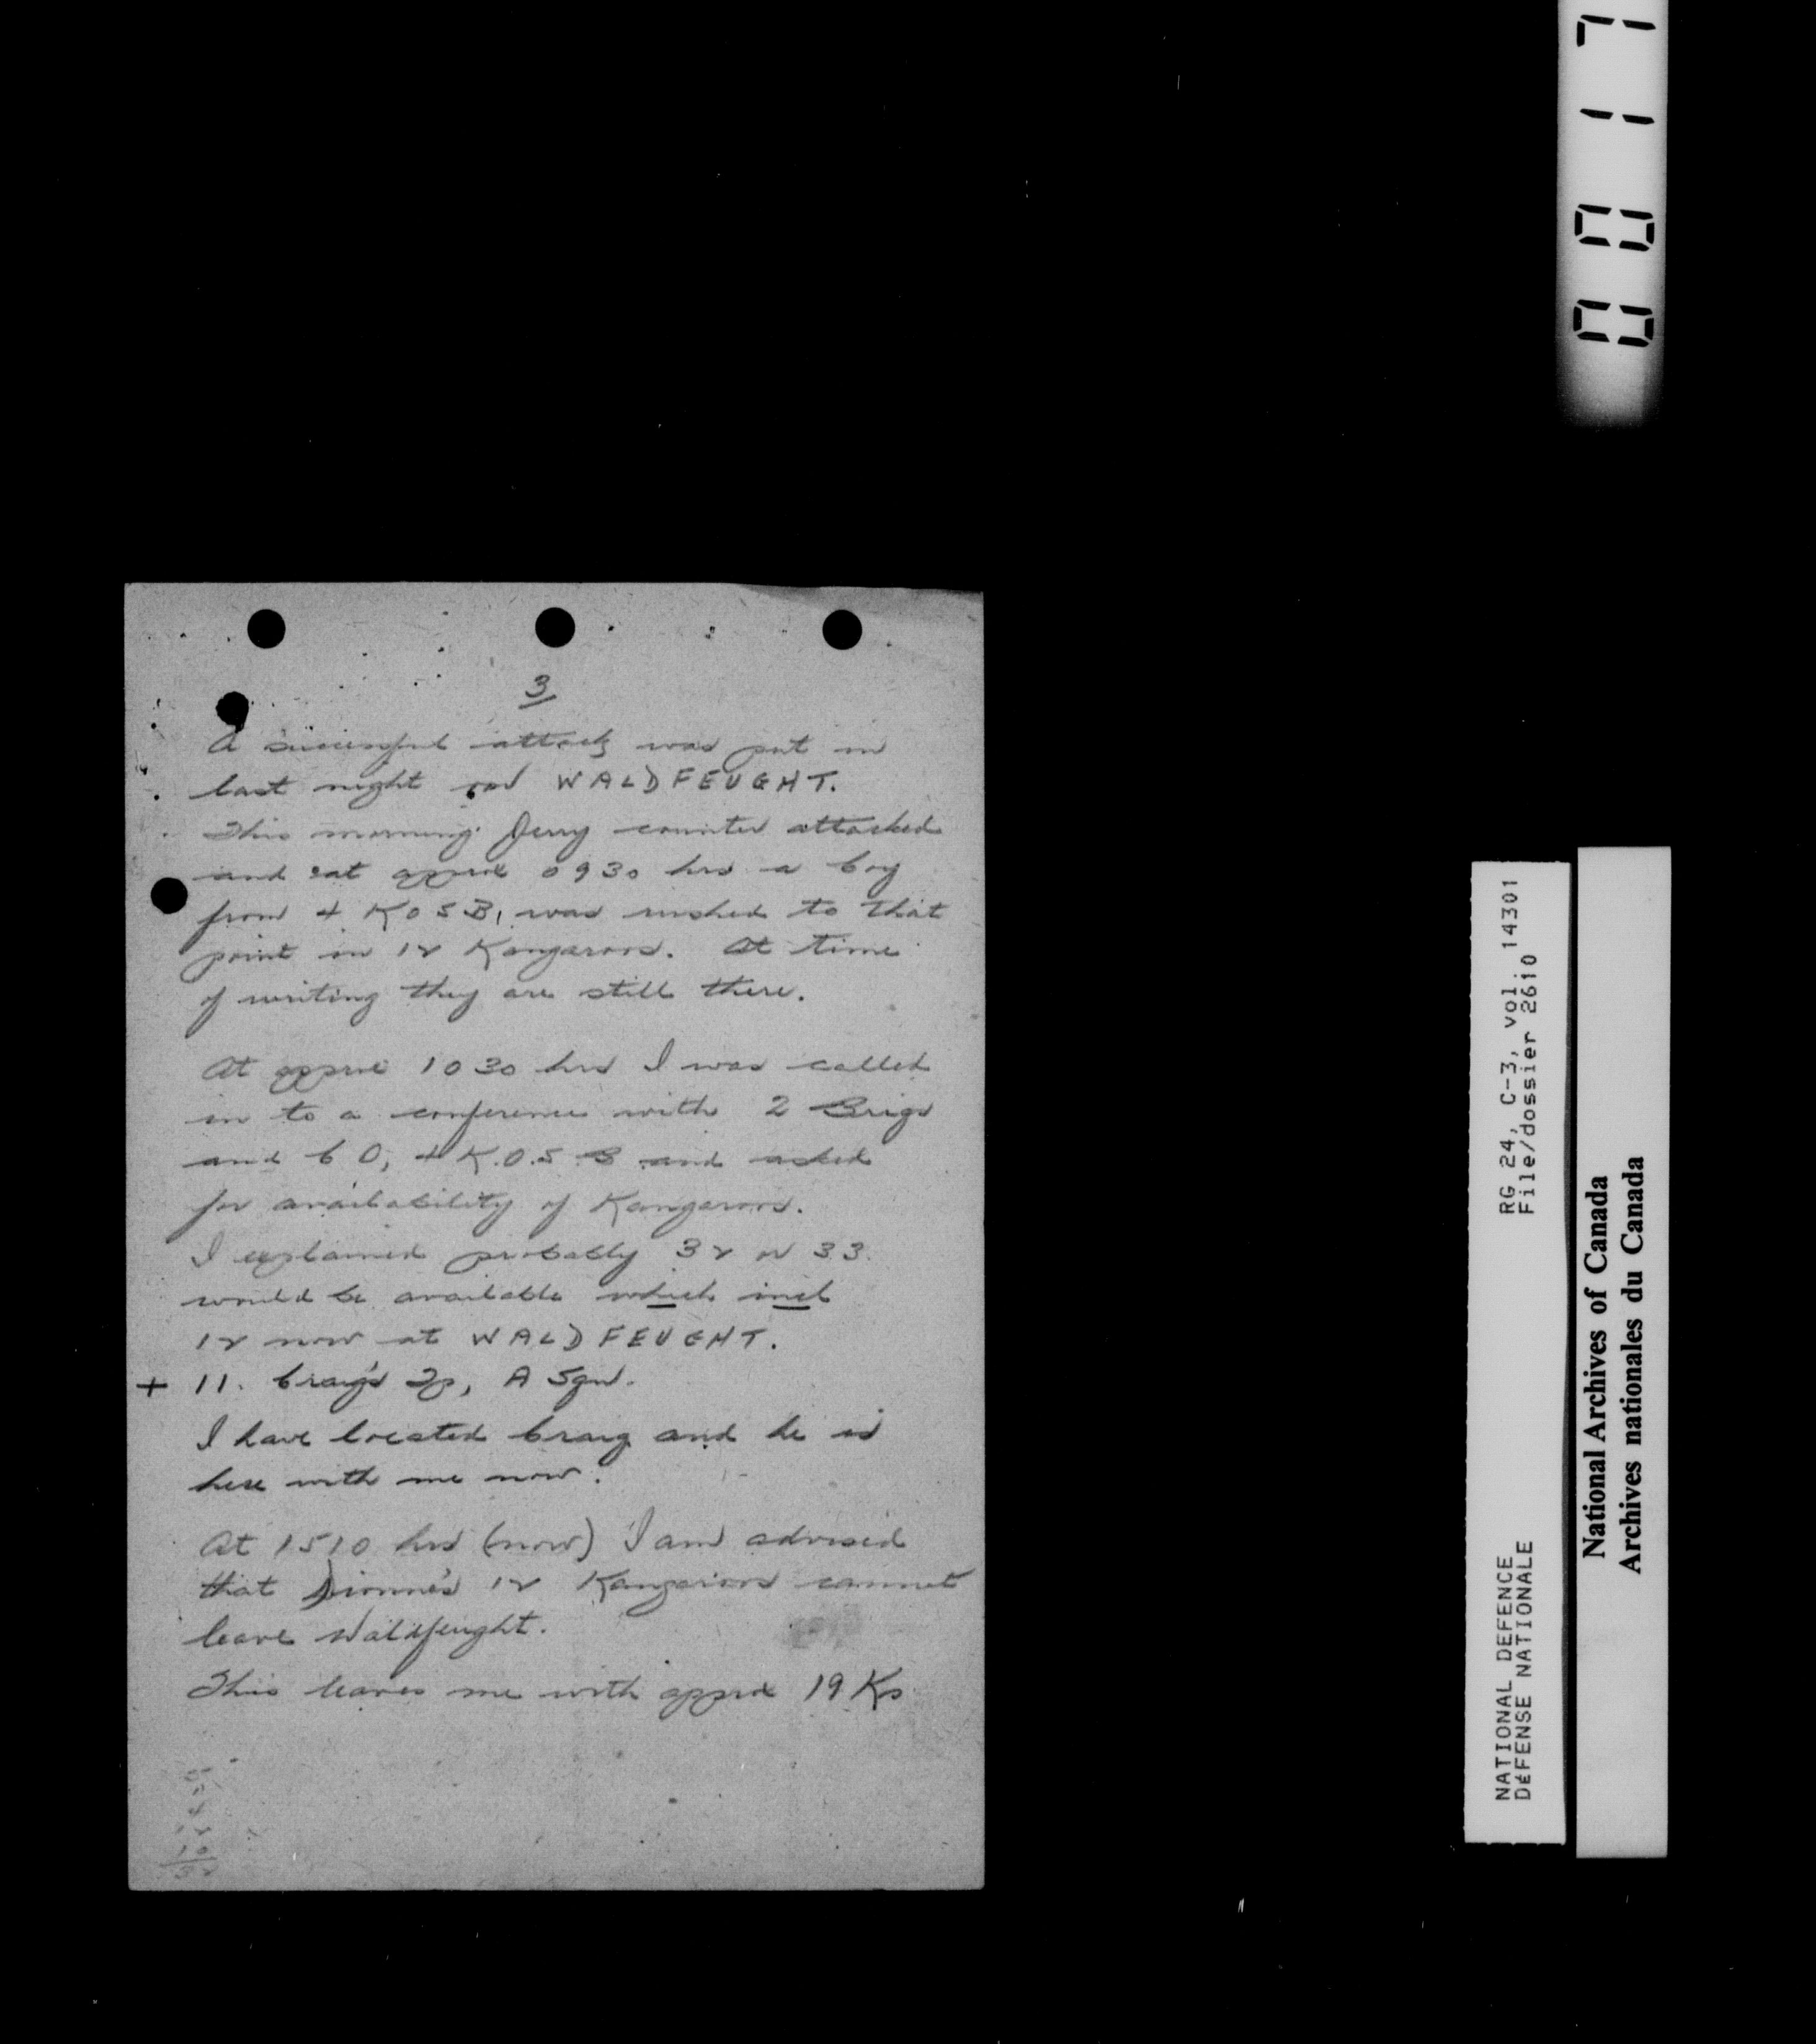 3
A successful attack was put in
last night on WALDFEUGHT.
This morning Jerry counter attacked
and at approx 0930 hrs a Coy
from 4 KOSB, was rushed to that
point in 12 Kangaroos. At time
of writing they are still there.
At approx 1030 hrs I was called
in to a conference with 2 Brigs
and CO, 4 K.O.S.B and asked
for availability of Kangaroos.
I explained probably 32 or 33
would be available which incl
12 now at WALDFEUGHT.
+ 11. Craig's Tp, A Sqn.
I have located Craig and he is
here with me now.
At 1510 hrs (now) I am advised
that Dionne's 12 Kangaroos cannot
leave Waldfeught.
This leaves me with approx 19 Ks
00117
RG 24, C-3, vol. 14301
File/dossier 2610
NATIONAL DEFENCE
DÉFENSE NATIONALE
National Archives of Canada
Archives nationales du Canada